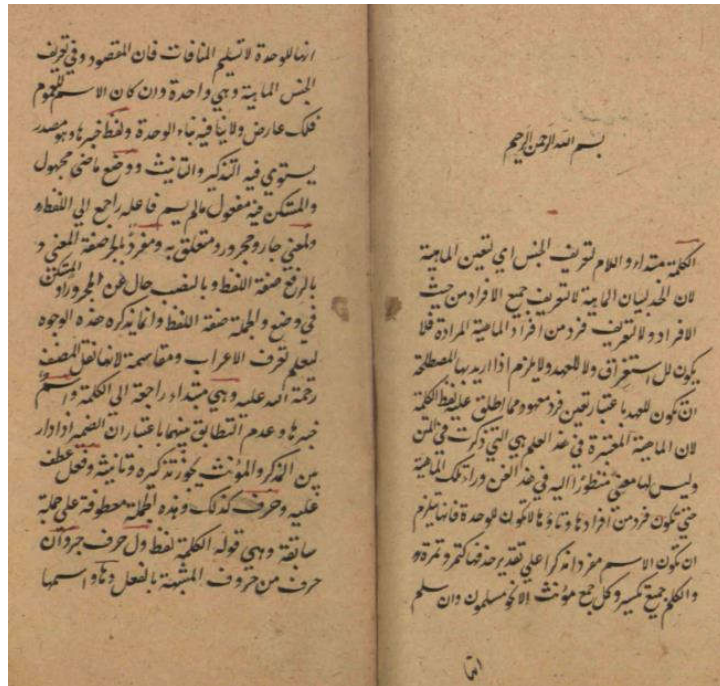 بسم الله الرحمن الرحيم
الكلمة مبتداء واللام لتعريف الجنس اي تعين الماهية
لان الحد لبيان الماهية لا لتعريف جميع الافراد من حيث
الافراد ولا لتعريف فرد من افراد الماهية المرادة فلا
يكون للاستغراق ولا للعهد ولا يلزم اذا اريد بها المصطلحة
ان يكون للعهد باعتبار تعين فرد معهود مما اطلق عليه لفظ الكلمة
لان الماهية المعتبرة في هذ العلم هي التي ذكرت في المتن
وليس لها معنى منظورا اليه في هذ الفن وراء تلك الماهية
حتى تكون فرد من افرادها وتاؤها لا تكون للوحدة فانها يلزم
ان يكون الاسم مفردا مذكرا على تقدير حذفها كتمر وتمرة و
والكلم جميع تكسير وكل جمع مؤنث الا نحو مسلمون وان سلم
انها
انها للوحدة لا نسلم المنافات فان المقصود في تعريف
الجنس الماهية وهي واحدة وان كان الاسم للعموم
فلك عارض ولا ينافيه تاء الوحدة ولفظ خبرها وهو مصدر
يستوي فيه التذكير والتانيث ووضع ماضي مجهول
والمستكن فيه مفعول مالم يسم فاعله راجع الي اللفظ و
ولمعني جار ومجرور ومتعلق به ومفرد بالجر صفة المعني و
بالرفع صفة اللفظ وبالنصب حال عن المجرور او المستكن
في وضع والجملة صفة اللفظ وانما يذكره هذه الوجوه
ليعلم تعرف الاعراب ومقاسمة لانها نقل المصنف
رحمة الله عليه وهي مبتداء راجعة الى الكلمة واسم
خبرها وعدم التطابق بينهما باعتبار ان الضمير اذا دار
بين المذكر والمؤنث يجوز تذكيره وتانيثه وفعل عطف
عليه وحرف كذلك وهذه الجملة معطوفة على جملة
سابقة وهي قوله الكلمة لفظ ول حرف جر وان
حرف من حروف المشبهة بالفعل وها واسمها